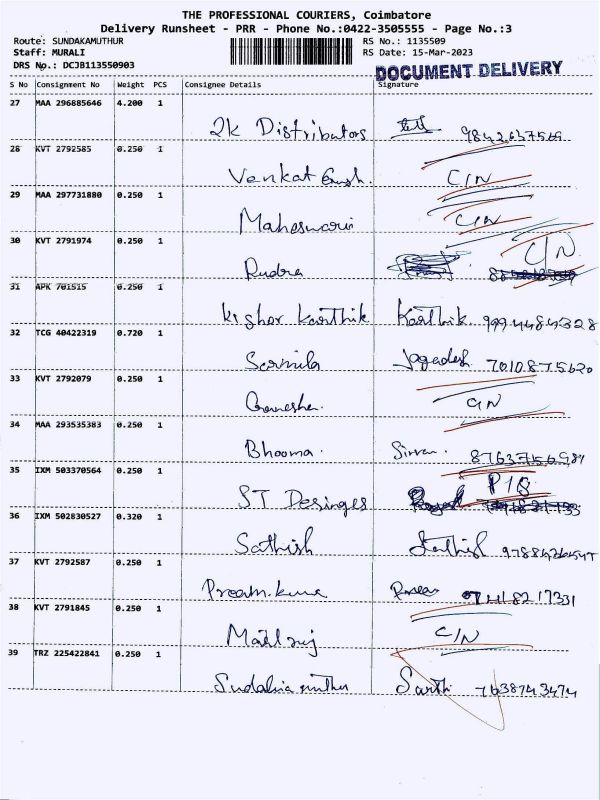 THE PROFESSIONAL COURIERS, Coimbatore
Delivery Runsheet - PRR - Phone No.:0422-3505555 - Page No.:3
Route: SUNDAKAMUTHUR RS No.: 1135509
Staff: MURALI RS Date: 15-Mar-2023
DRS No.: DCJB113550903
DOCUMENT DELIVERY
S No Consignment No Weight PCS Consignee Details Signature
27 MAA 296885646 4.200 1
2k Distributors
28 KVT 2792585 0.250 1
Venkat C/N
29 MAA 297731880 0.250 1
Maheswari C/N
30 KVT 2791974 0.250 1
Rudra C/N
31 APK 701515 0.250 1
Kishor Karthik Karthik 9994484328
32 TCG 40422319 0.720 1
Sarmila Jagadesh 7010875620
33 KVT 2792079 0.250 1
Ganesha C/N
34 MAA 293535383 0.250 1
Bhooma.
35 IXM 503370564 0.250 1
ST Desinges
36 IXM 502830527 0.320 1
Sathish Sathish
37 KVT 2792587 0.250 1
38 KVT 2791845 0.250 1
C/N
39 TRZ 225422841 0.250 1
7638743474